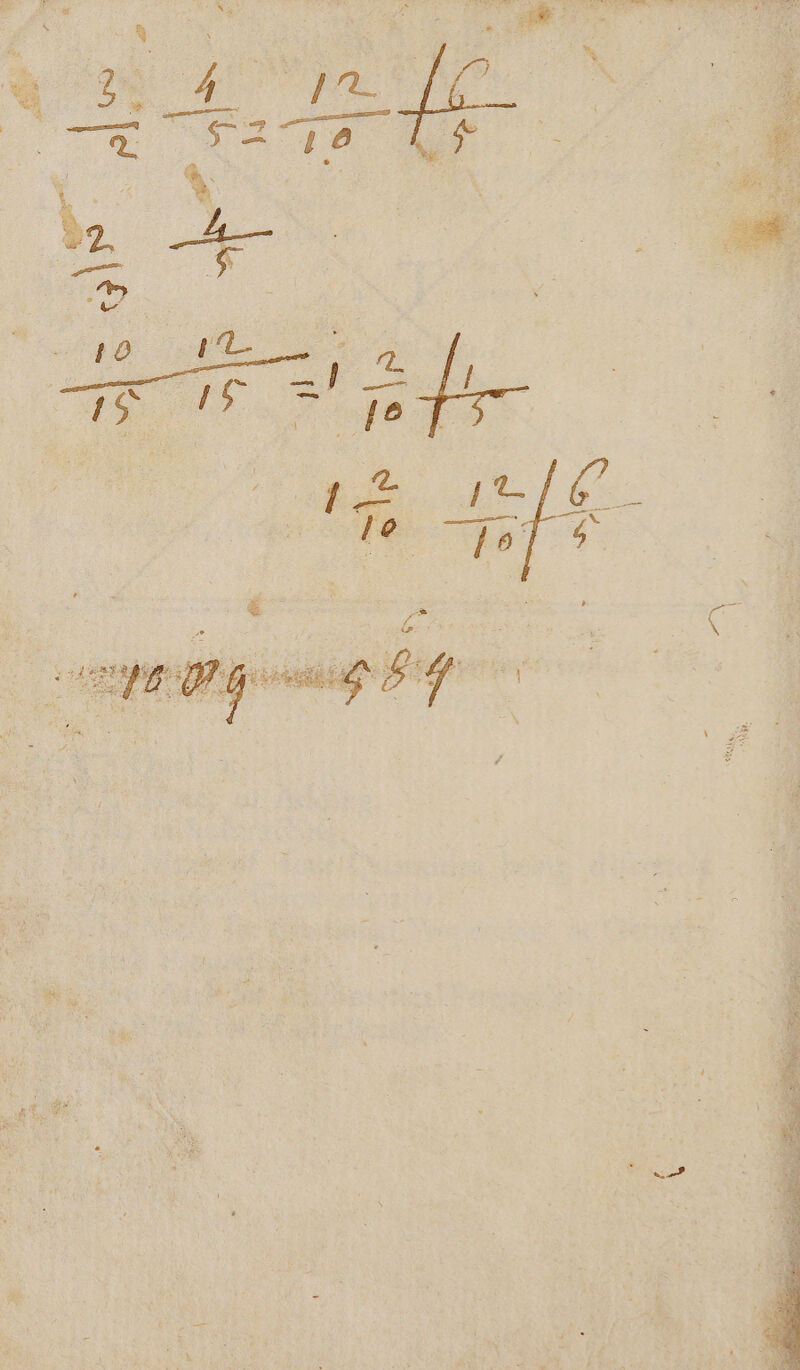 3/2 4/5 = 12/10 | 6/5
2/3 4/5
10/15 12/15 = 1 2/10 | 1/5
1 2/10 12/10 | 6/5
584